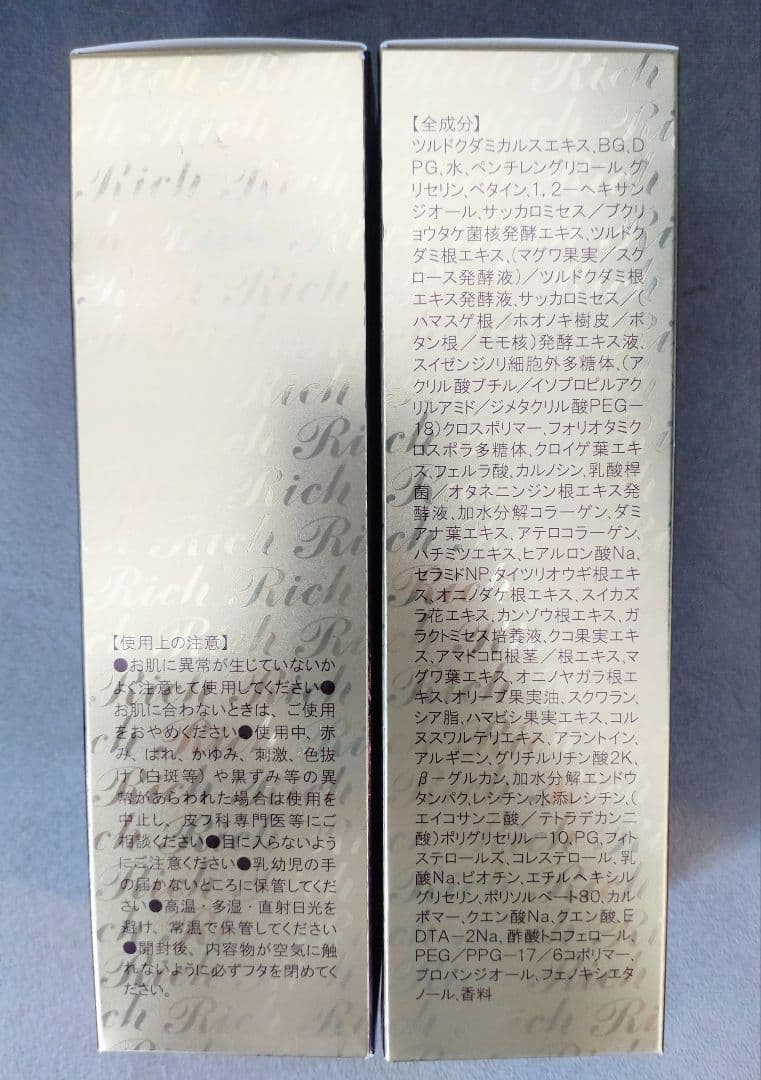 Rich Rich
【使用上の注意】
●お肌に異常が生じていないか
よく注意して使用してください●
お肌に合わないときは、ご使用
をおやめください●使用中、赤
み、はれ、かゆみ、刺激、色抜
け(白斑等)や黒ずみ等の異
常があらわれた場合は使用を
中止し、皮フ科専門医等にご
相談ください●目に入らないよう
にご注意ください●乳幼児の手
の届かないところに保管してくだ
さい●高温・多湿・直射日光を
避け、常温で保管してください
●開封後、内容物が空気に触
れないように必ずフタを閉めてく
ださい。
【全成分】
ツルドクダミカルスエキス、BG、D
PG、水、ペンチレングリコール、グ
リセリン、ベタイン、1,2－ヘキサン
ジオール、サッカロミセス／ブクリ
ョウタケ菌核発酵エキス、ツルドク
ダミ根エキス、(マグワ果実／スク
ロース発酵液)／ツルドクダミ根
エキス発酵液、サッカロミセス／(
ハマスゲ根／ホオノキ樹皮／ボ
タン根／モモ核)発酵エキス液、
スイゼンジノリ細胞外多糖体、(ア
クリル酸ブチル／イソプロピルアク
リルアミド／ジメタクリル酸PEG－
18)クロスポリマー、フォリオタミク
ロスポラ多糖体、クロイゲ葉エキ
ス、フェルラ酸、カルノシン、乳酸桿
菌／オタネニンジン根エキス発
酵液、加水分解コラーゲン、ダミ
アナ葉エキス、アテロコラーゲン、
ハチミツエキス、ヒアルロン酸Na、
セラミドNP、タイツリオウギ根エキ
ス、オニノダケ根エキス、スイカズ
ラ花エキス、カンゾウ根エキス、ガ
ラクトミセス培養液、クコ果実エキ
ス、アマドコロ根茎／根エキス、マ
グワ葉エキス、オニノヤガラ根エ
キス、オリーブ果実油、スクワラン、
シア脂、ハマビシ果実エキス、コル
ヌスワルテリエキス、アラントイン、
アルギニン、グリチルリチン酸2K、
β－グルカン、加水分解エンドウ
タンパク、レシチン、水添レシチン、(
エイコサン二酸／テトラデカン二
酸)ポリグリセリル－10、PG、フィト
ステロールズ、コレステロール、乳
酸Na、ビオチン、エチルヘキシル
グリセリン、ポリソルベート80、カル
ボマー、クエン酸Na、クエン酸、E
DTA－2Na、酢酸トコフェロール、
PEG／PPG－17／6コポリマー、
プロパンジオール、フェノキシエタ
ノール、香料